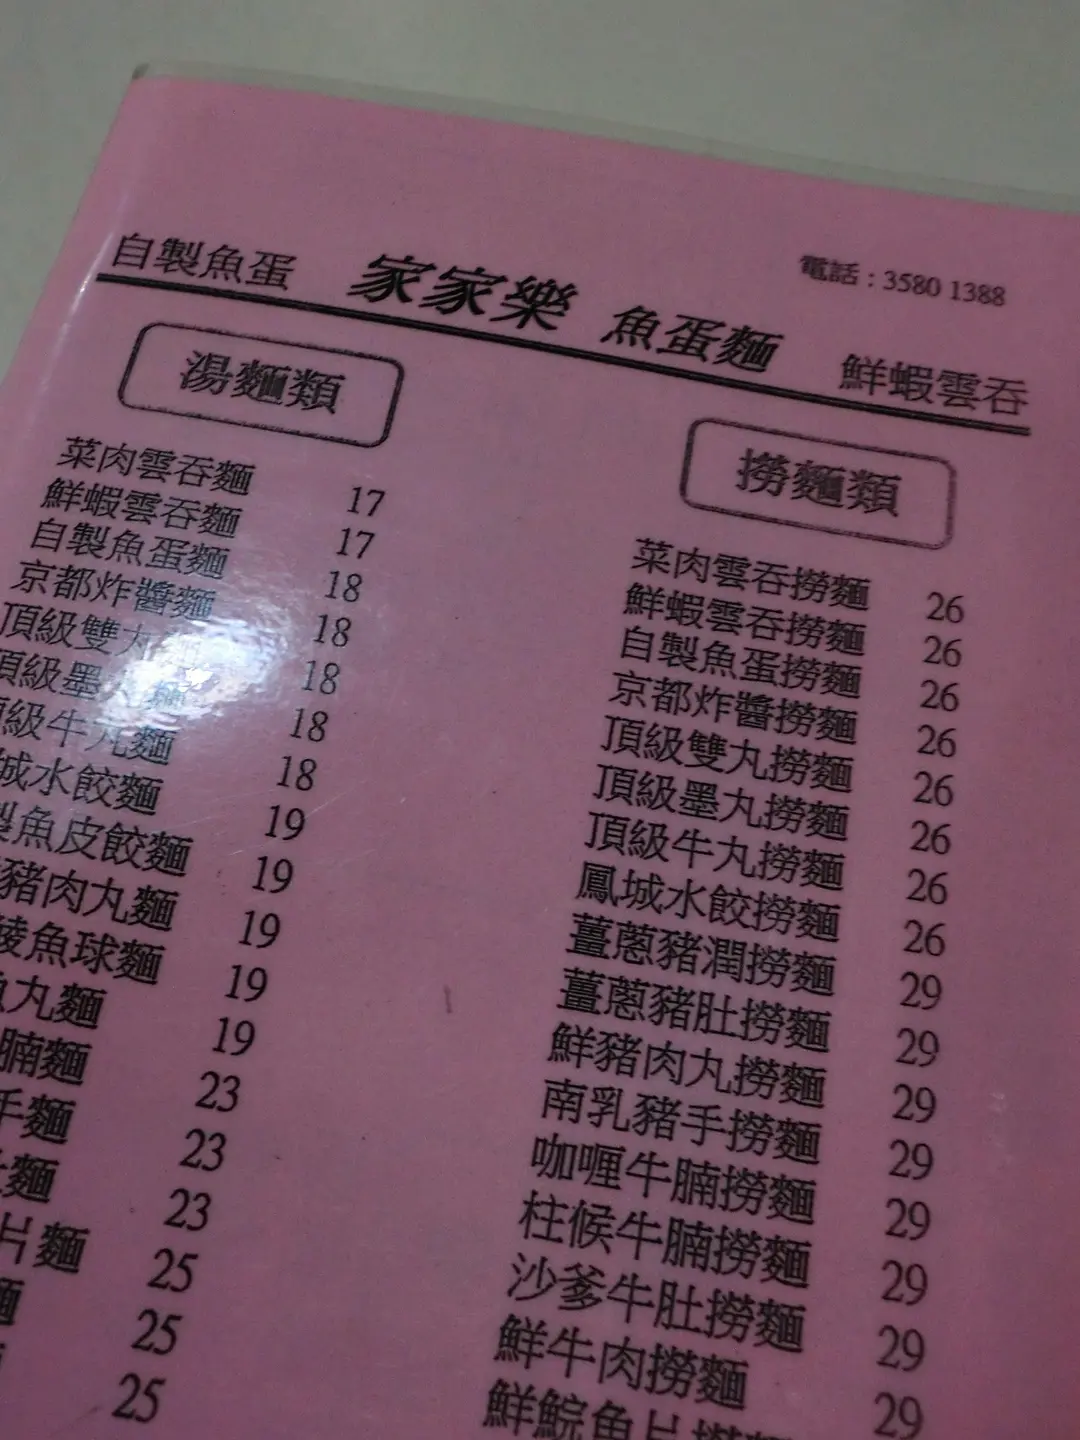 自製魚蛋 家家樂 魚蛋麵 鮮蝦雲吞
電話 : 3580 1388
湯麵類
菜肉雲吞麵 17
鮮蝦雲吞麵 17
自製魚蛋麵 18
京都炸醬麵 18
頂級雙 18
頂級墨 麵 18
級牛丸麵 18
城水餃麵 19
製魚皮餃麵 19
豬肉丸麵 19
鯪魚球麵 19
丸麵 19
腩麵 23
手麵 23
麵 23
片麵 25
麵 25
25
撈麵類
菜肉雲吞撈麵 26
鮮蝦雲吞撈麵 26
自製魚蛋撈麵 26
京都炸醬撈麵 26
頂級雙丸撈麵 26
頂級墨丸撈麵 26
頂級牛丸撈麵 26
鳳城水餃撈麵 26
薑蔥豬潤撈麵 29
薑蔥豬肚撈麵 29
鮮豬肉丸撈麵 29
南乳豬手撈麵 29
咖喱牛腩撈麵 29
柱候牛腩撈麵 29
沙爹牛肚撈麵 29
鮮牛肉撈麵 29
鮮鯇魚片撈麵